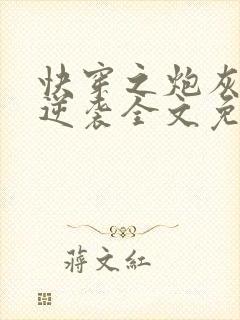 快穿之炮灰
逆袭全文免
蒋文紅